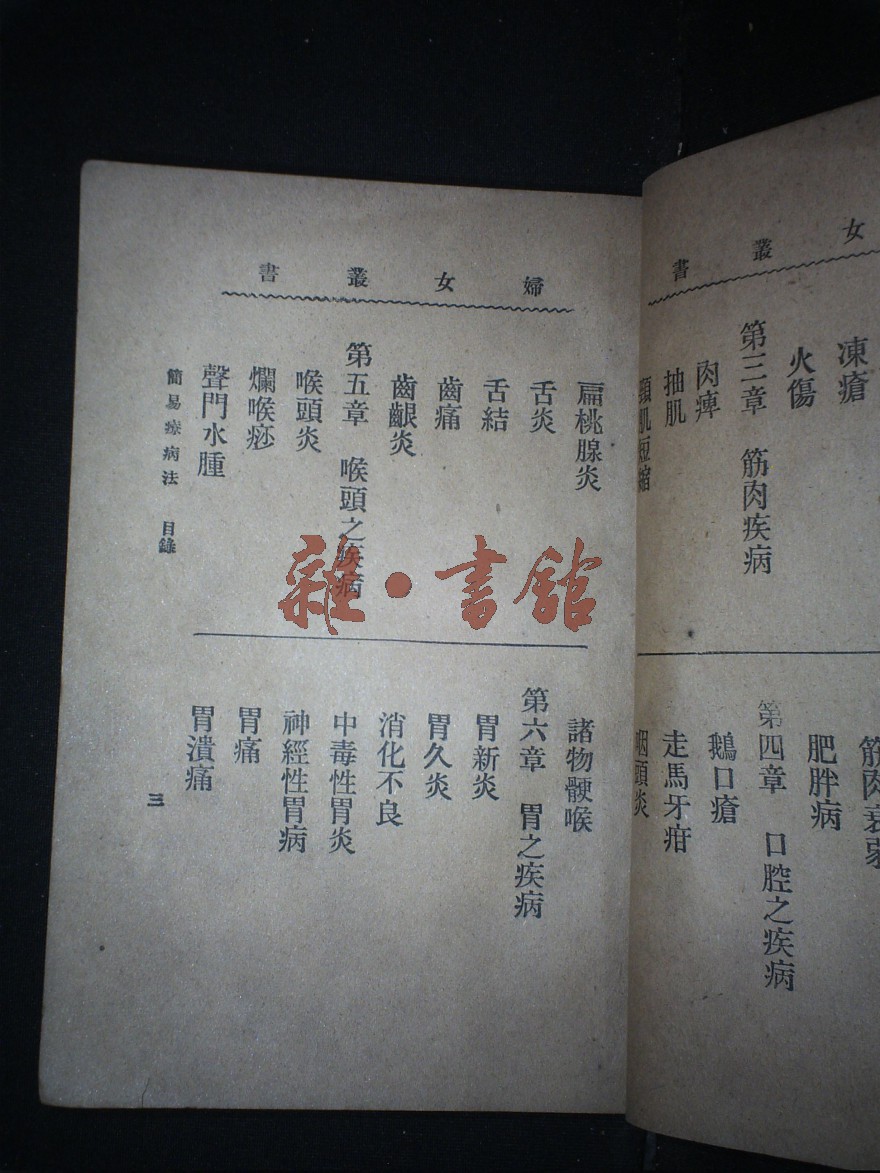 女叢書
凍瘡
火傷
第三章 筋肉疾病
肉痺
抽肌
頸肌短縮
筋肉衰弱
肥胖病
第四章 口腔之疾病
鵝口瘡
走馬牙疳
咽頭炎
婦女叢書
扁桃腺炎
舌炎
舌結
齒痛
齒齦炎
第五章 喉頭之疾病
喉頭炎
爛喉痧
聲門水腫
諸物骾喉
第六章 胃之疾病
胃新炎
胃久炎
消化不良
中毒性胃炎
神經性胃病
胃痛
胃潰痛
簡易療病法 目錄
三
雜·書館